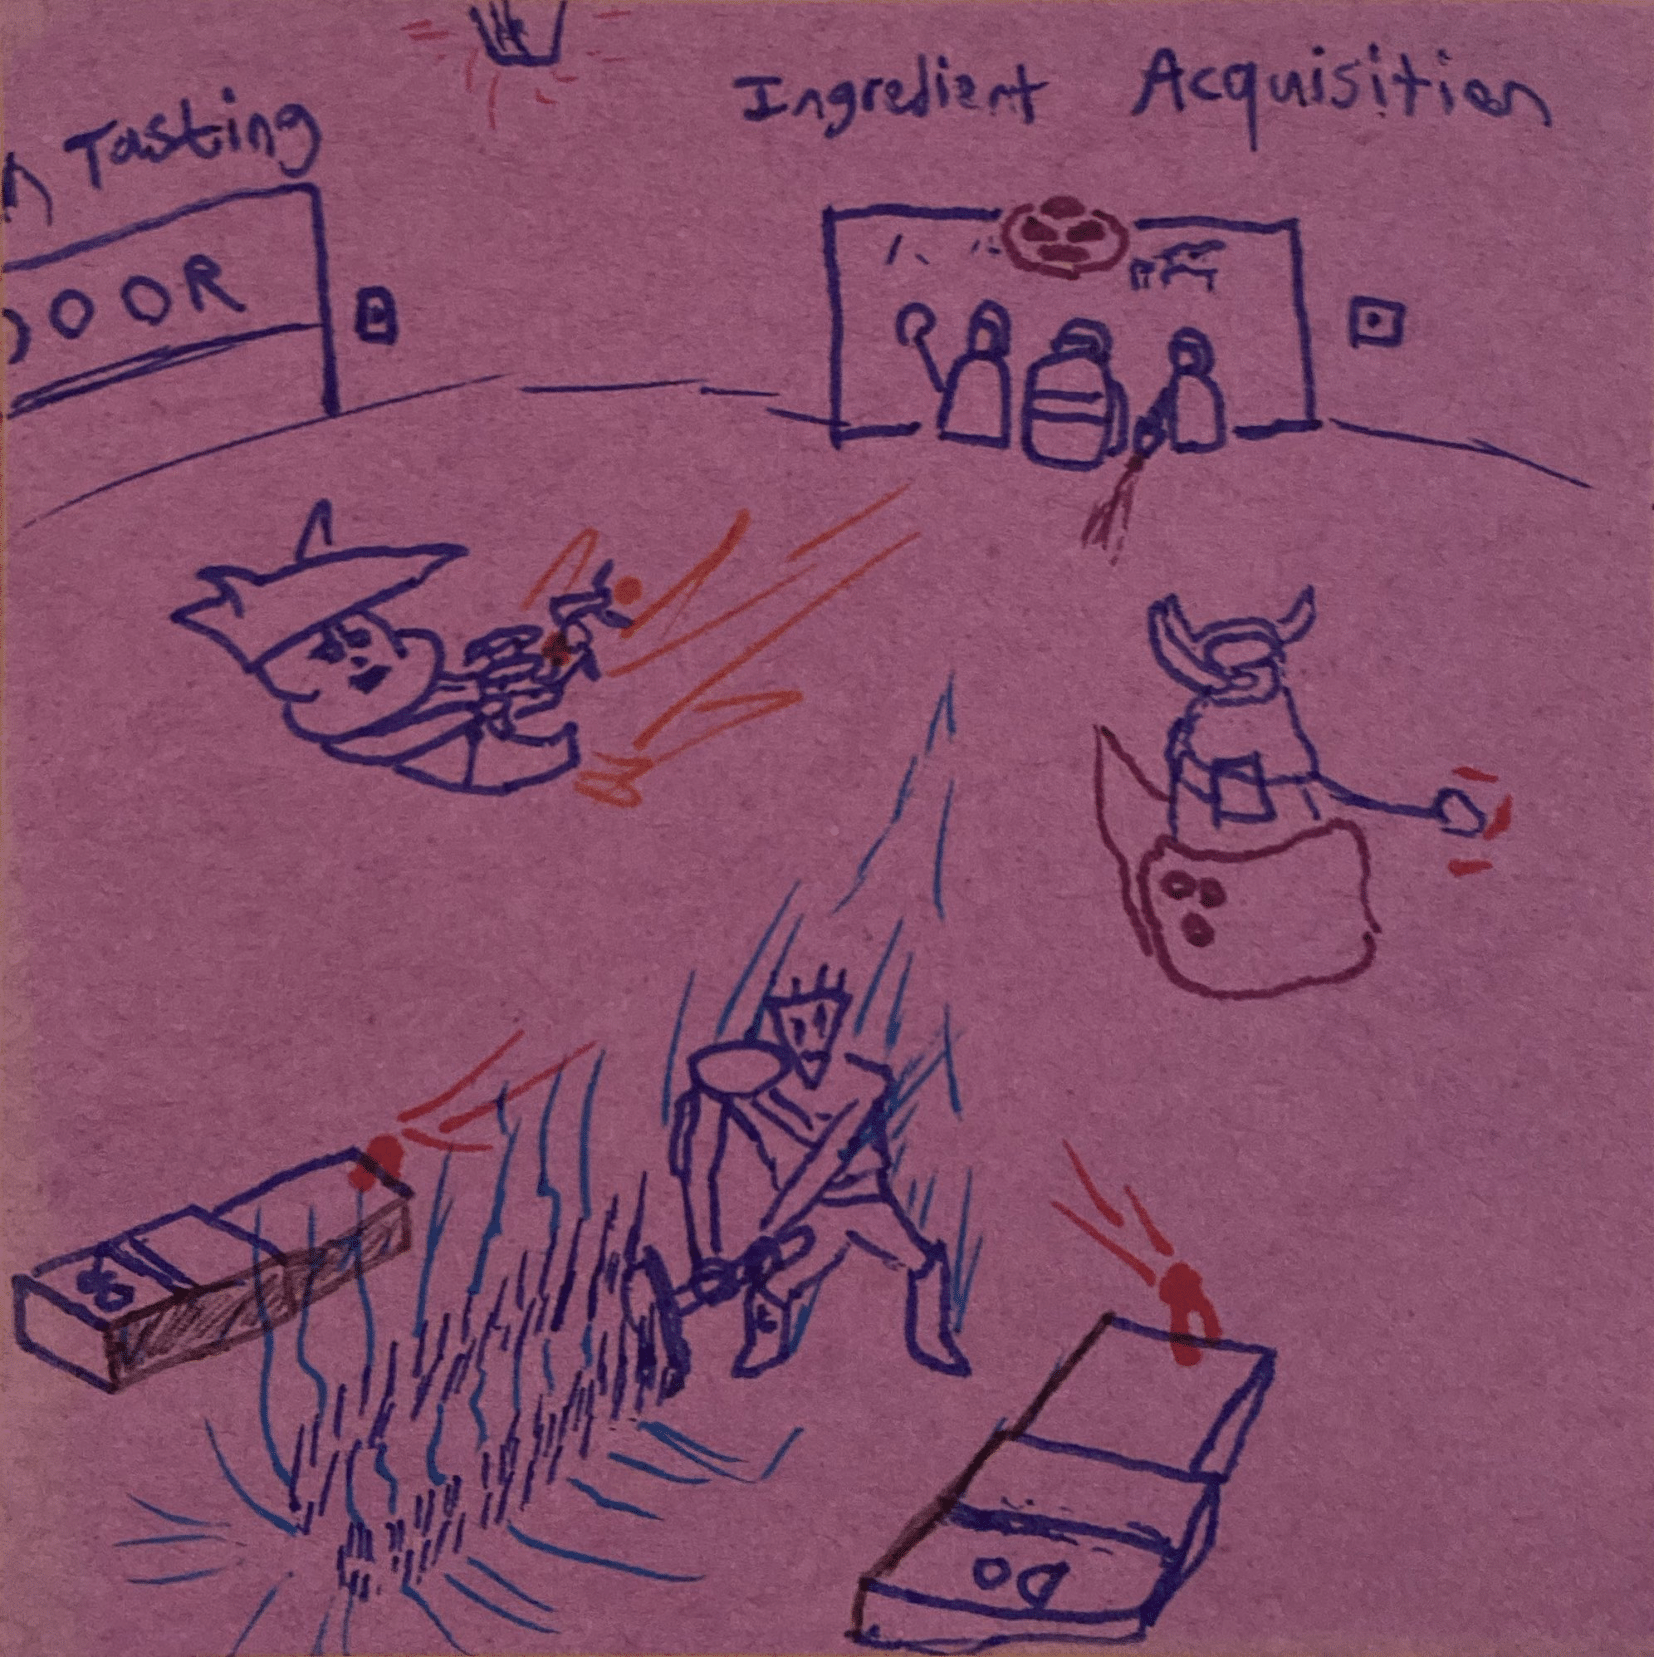 Tasting
Ingredient Acquisition
OOR